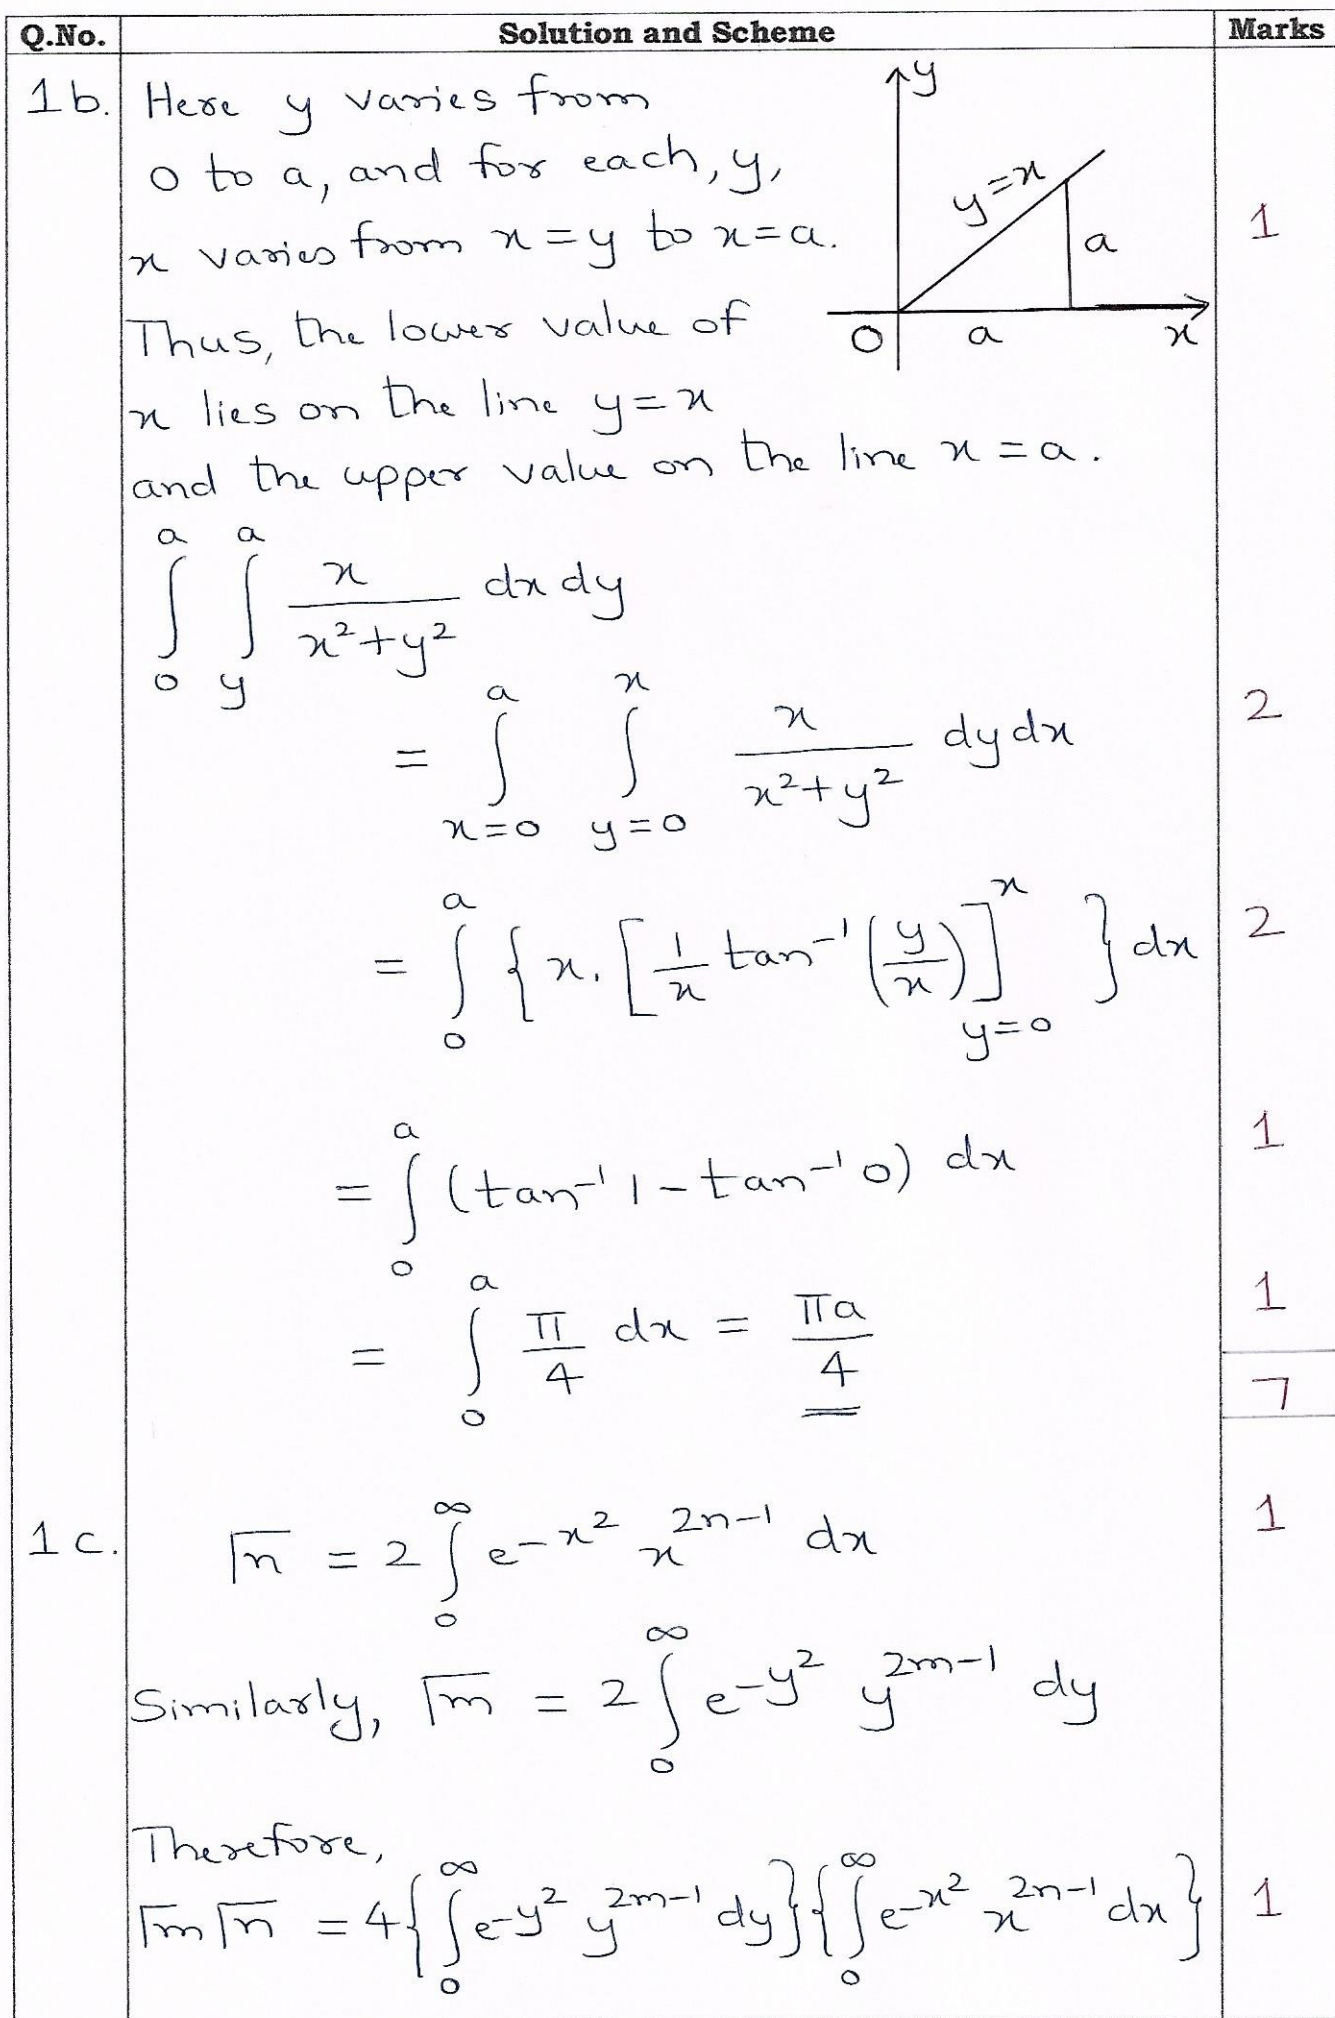 Q.No. Solution and Scheme Marks
1b. Here y varies from
0 to a, and for each, y,
x varies from x = y to x = a. 1
Thus, the lower value of
x lies on the line y = x
and the upper value on the line x = a.
y
y = x
a
O a x
∫₀ᵃ ∫_y^a x/(x²+y²) dx dy
= ∫_{x=0}^{a} ∫_{y=0}^{x} x/(x²+y²) dy dx 2
= ∫₀ᵃ { x. [ 1/x tan⁻¹ (y/x) ]_{y=0}^{x} } dx 2
= ∫₀ᵃ (tan⁻¹ 1 − tan⁻¹ 0) dx 1
= ∫₀ᵃ π/4 dx = πa/4 1
7
1c. Γn = 2 ∫₀^∞ e^{−x²} x^{2n−1} dx 1
Similarly, Γm = 2 ∫₀^∞ e^{−y²} y^{2m−1} dy
Therefore,
Γm Γn = 4 { ∫₀^∞ e^{−y²} y^{2m−1} dy } { ∫₀^∞ e^{−x²} x^{2n−1} dx } 1